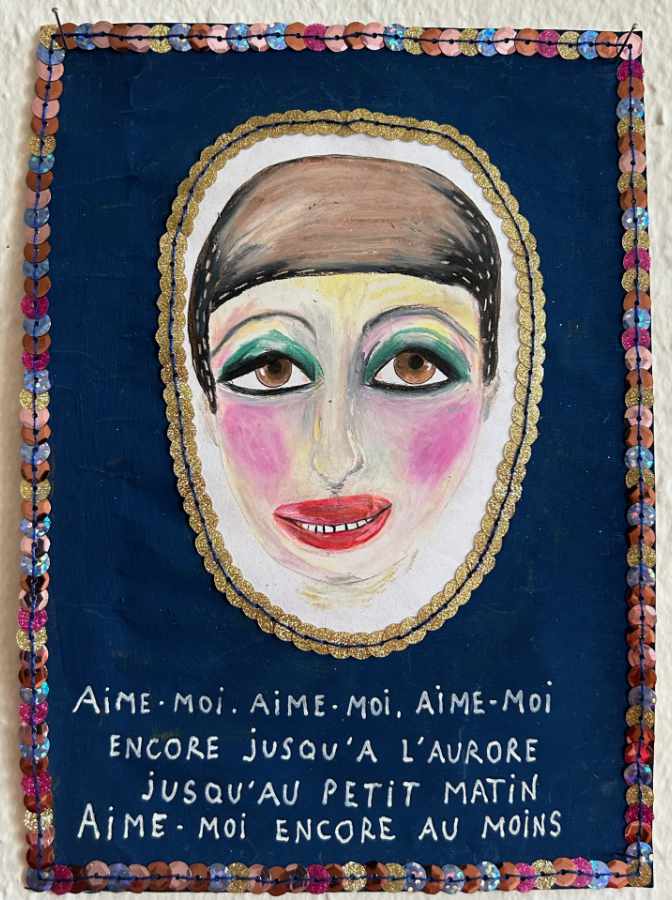 AiME-MOi. AiME-MOi, AiME-MOi
ENCORE jUSQU'A L'AURORE
jUSQU'AU PETiT MATiN
AiME-MOi ENCORE AU MOiNS